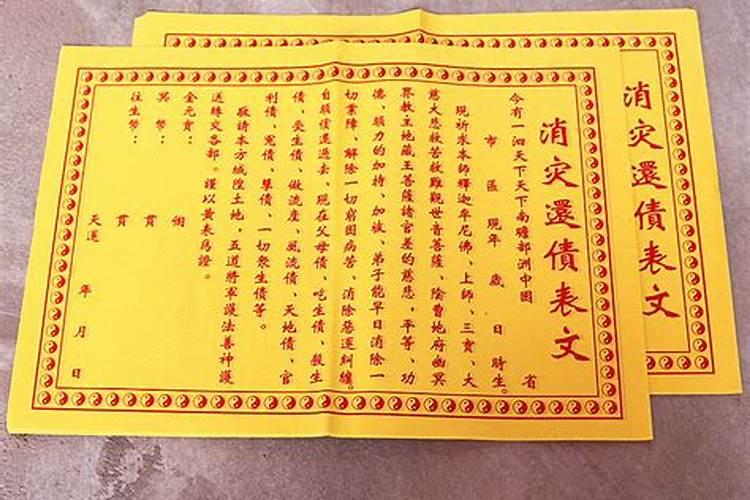 消灾還債表文
今有一泗天下天下南瞻部洲中國 省
市 區 現年 歲 日 時生。
現祈求本師釋迦牟尼佛、上師、三寶、大
慈大悲救苦救難觀世音菩薩、陰曹地府幽冥
界教主地藏王菩薩諸官差的慈悲,平等、功
德、願力的加持、加被、弟子能早日消除一
切業障、解除一切窮困病苦、消除惡運糾纏。
自願償還過去、現在父母債、吃生債、殺生
債、受生債、做流產、風流債、天地債、官
利債、冤債、孽債、一切眾生債等。
敬請本方城隍土地,五道將軍護法善神護
送轉交各部。謹以黃表為證。
金元寶: 個
冥幣: 貫
往生幣: 貫
天運 年 月 日
消灾還債表文